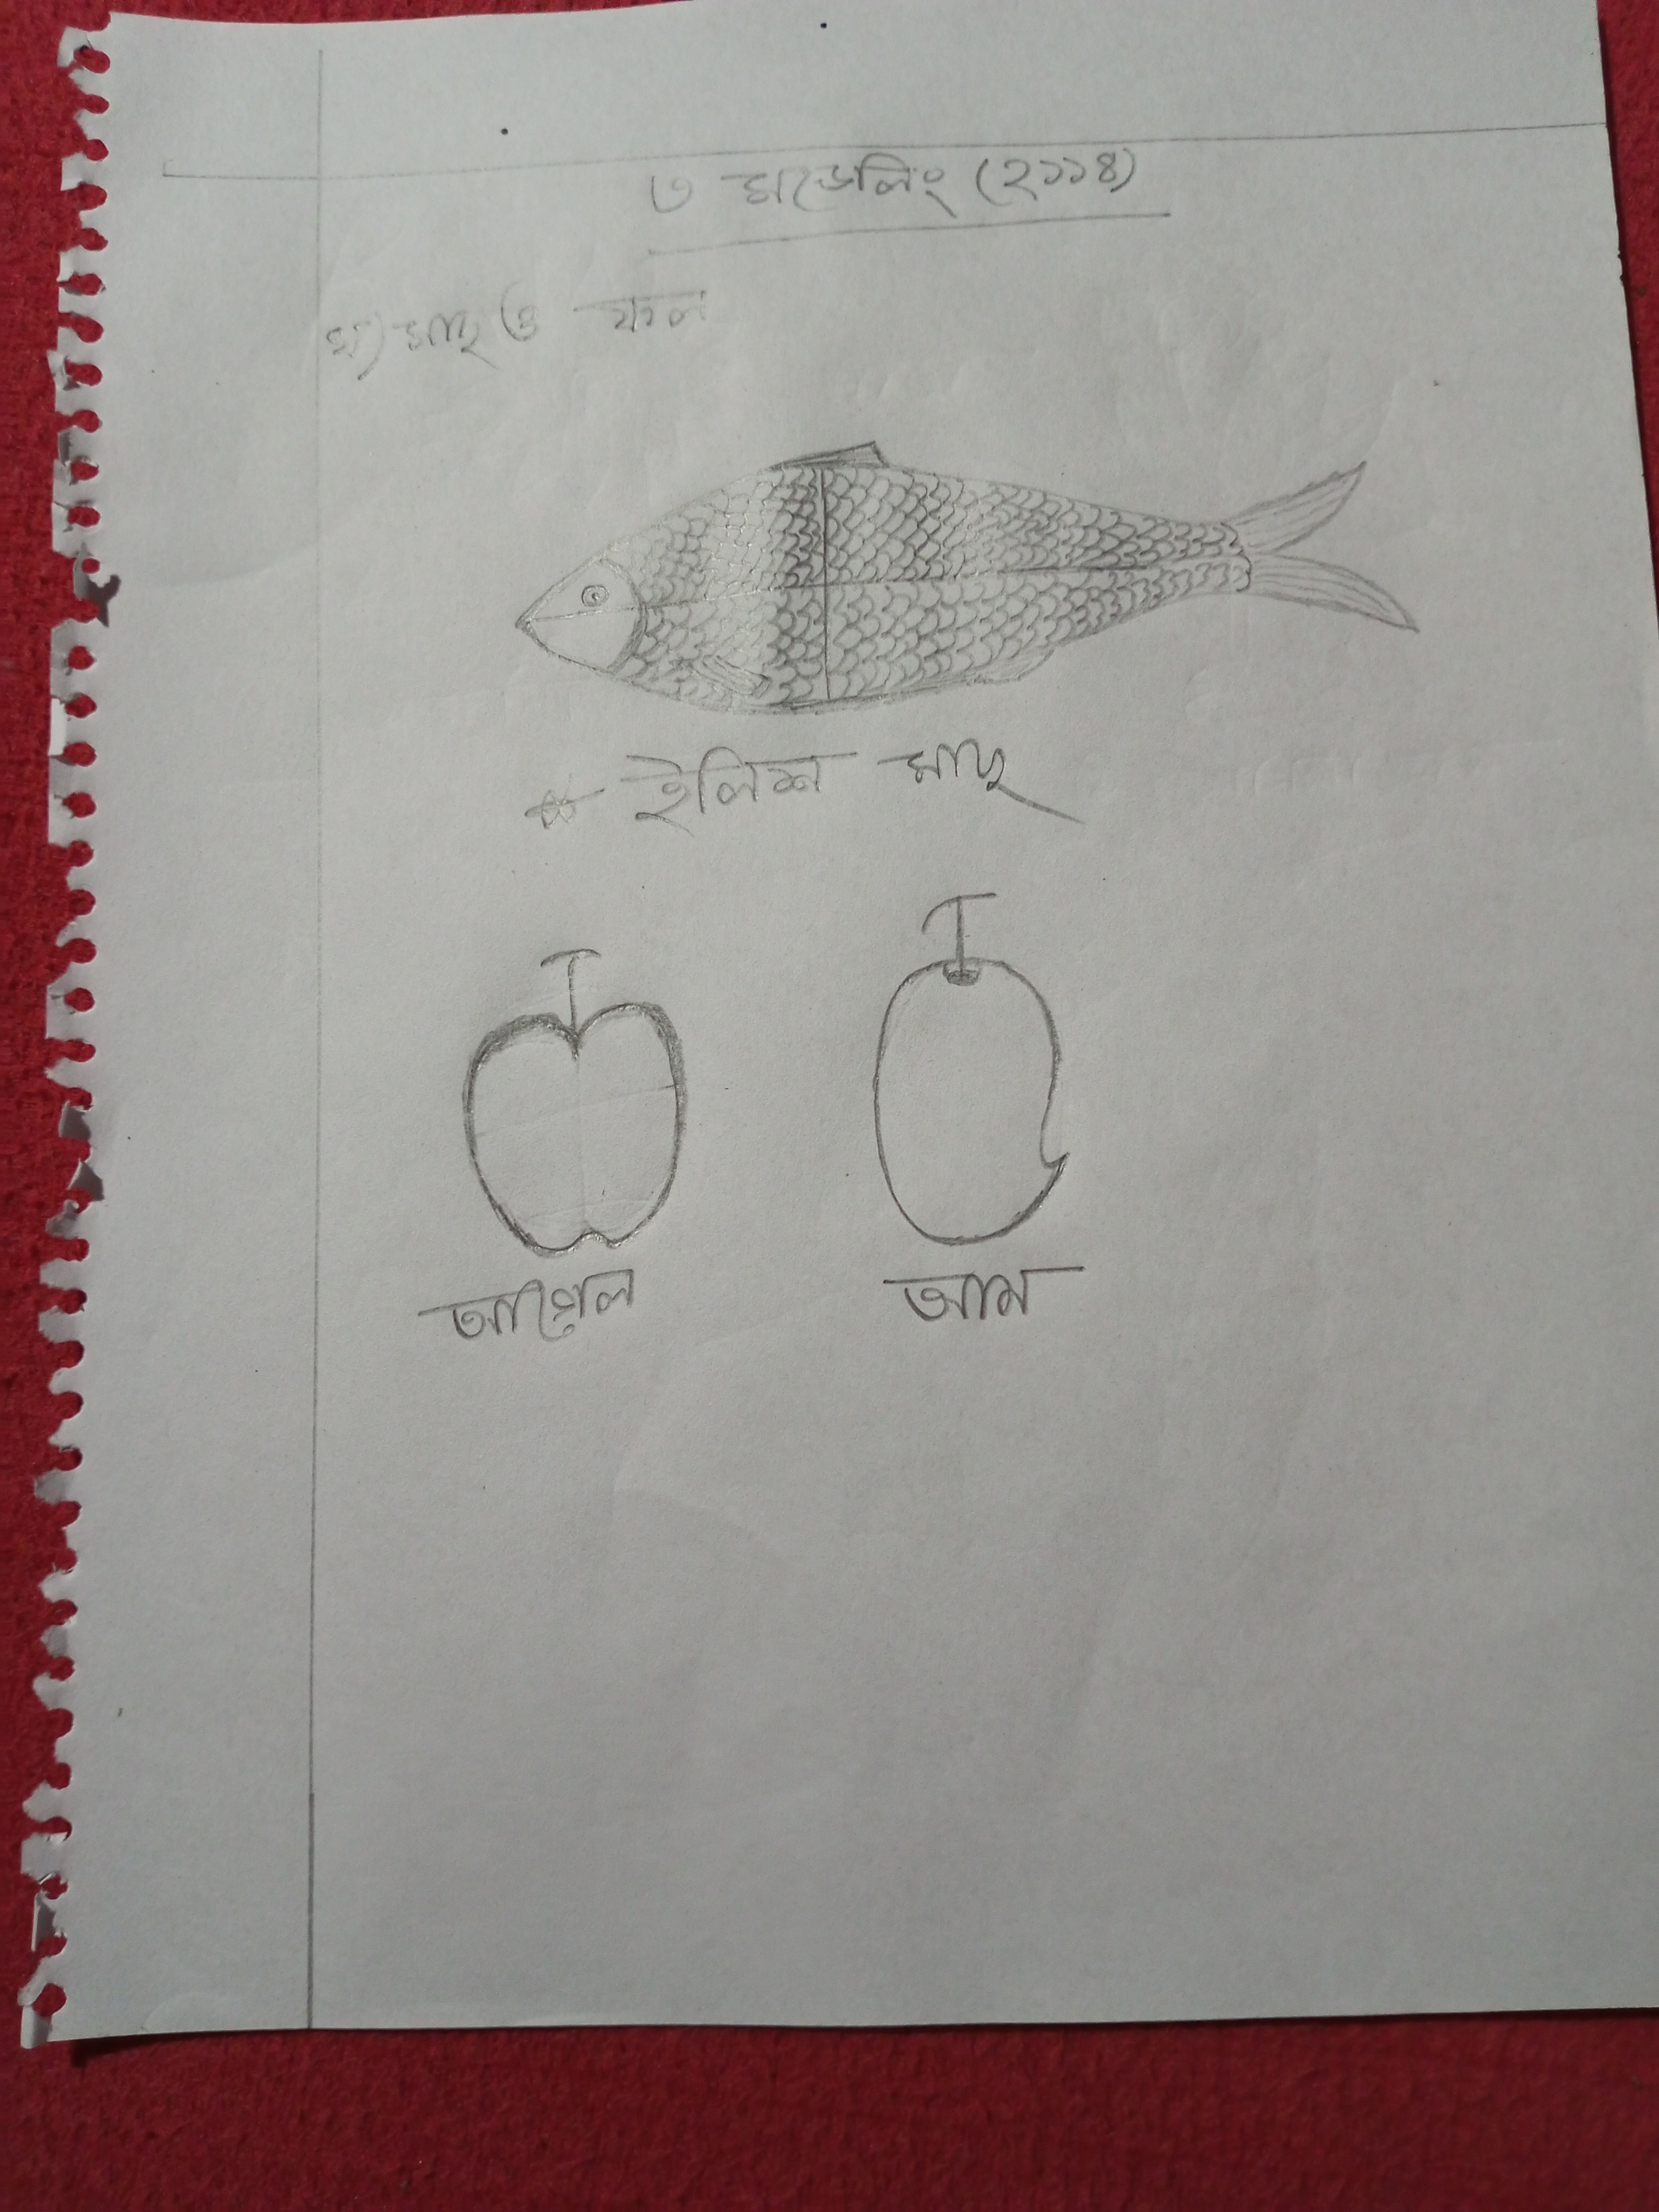 ৩ মডেলিং (২১১৪)
ঘ) মাছ ও ফল
* ইলিশ মাছ
আপেল
আম